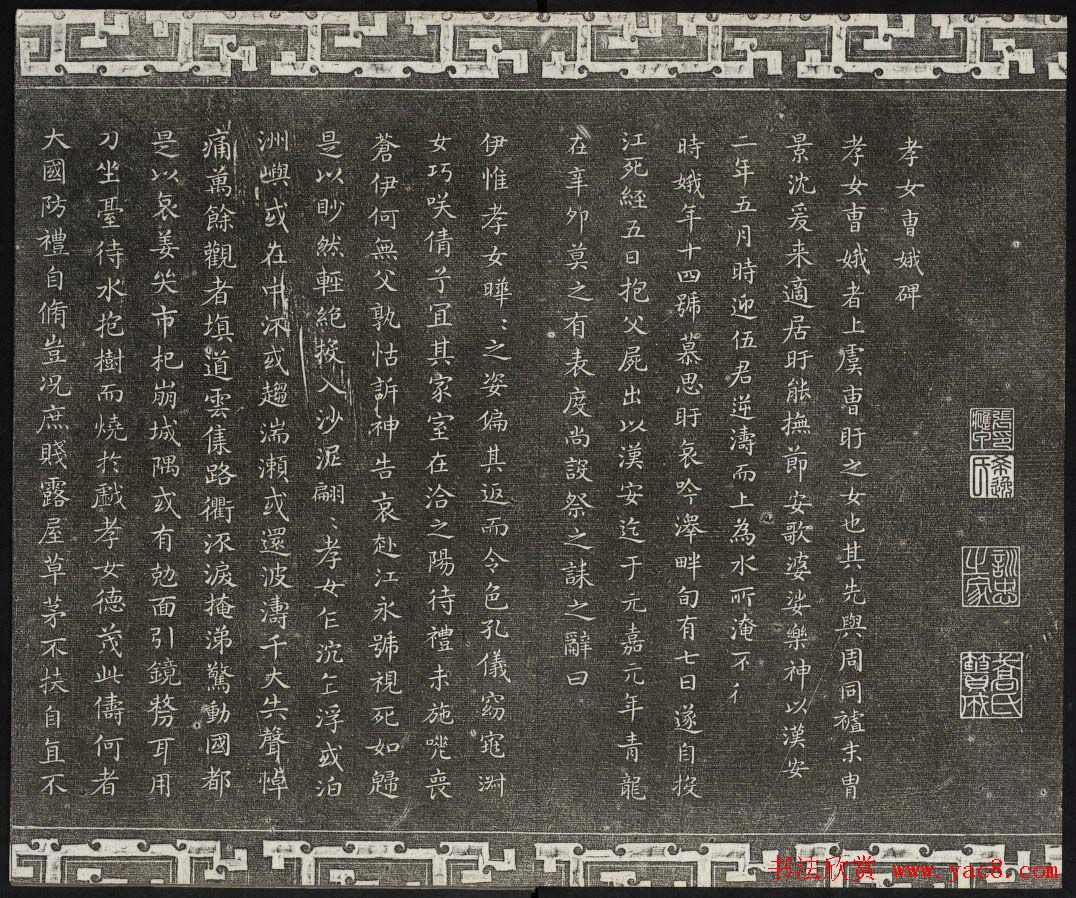 孝女曹娥碑
孝女曹娥者上虞曹盱之女也其先與周同祖末胄
景沈爰来適居盱能撫節安歌婆娑樂神以漢安
二年五月時迎伍君逆濤而上為水所淹不
時娥年十四號慕思盱哀吟澤畔旬有七日遂自投
江死經五日抱父屍出以漢安迄于元嘉元年青龍
在辛夘莫之有表度尚設祭之誄之辭曰
伊惟孝女曄:之姿偏其返而令色孔儀窈窕淑
女巧咲倩兮宜其家室在洽之陽待禮未施嗟喪
蒼伊何無父孰怙訴神告哀赴江永號視死如歸
是以眇然輕絶投入沙泥翩:孝女乍沉乍浮或泊
洲嶼或在中沠或趨湍瀬或還波濤千夫失聲悼
痛萬餘觀者填道雲集路衢沠淚掩涕驚動國都
是以哀姜哭市杞崩城隅或有尅面引鏡剺耳用
刀坐臺待水抱樹而燒於戲孝女德茂此儔何者
大國防禮自脩豈况庶賤露屋草茅不扶自直不
書法欣賞 www.yac8.com